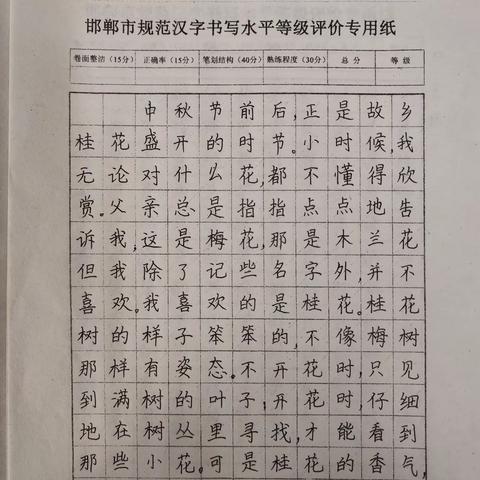 邯郸市规范汉字书写水平等级评价专用纸
卷面整洁（15分） 正确率（15分） 笔划结构（40分） 熟练程度（30分） 总 分 等 级
中秋节前后,正是故乡
桂花盛开的时节。小时候,我
无论对什么花,都不懂得欣
赏。父亲总是指指点点地告
诉我,这是梅花,那是木兰花
但我除了记些名字外,并不
喜欢。我喜欢的是桂花。桂花
树的样子笨笨的,不像梅树
那样有姿态。不开花时,只见
到满树的叶子;开花时,仔细
地在树丛里寻找,才能看到
那些小花。可是桂花的香气,